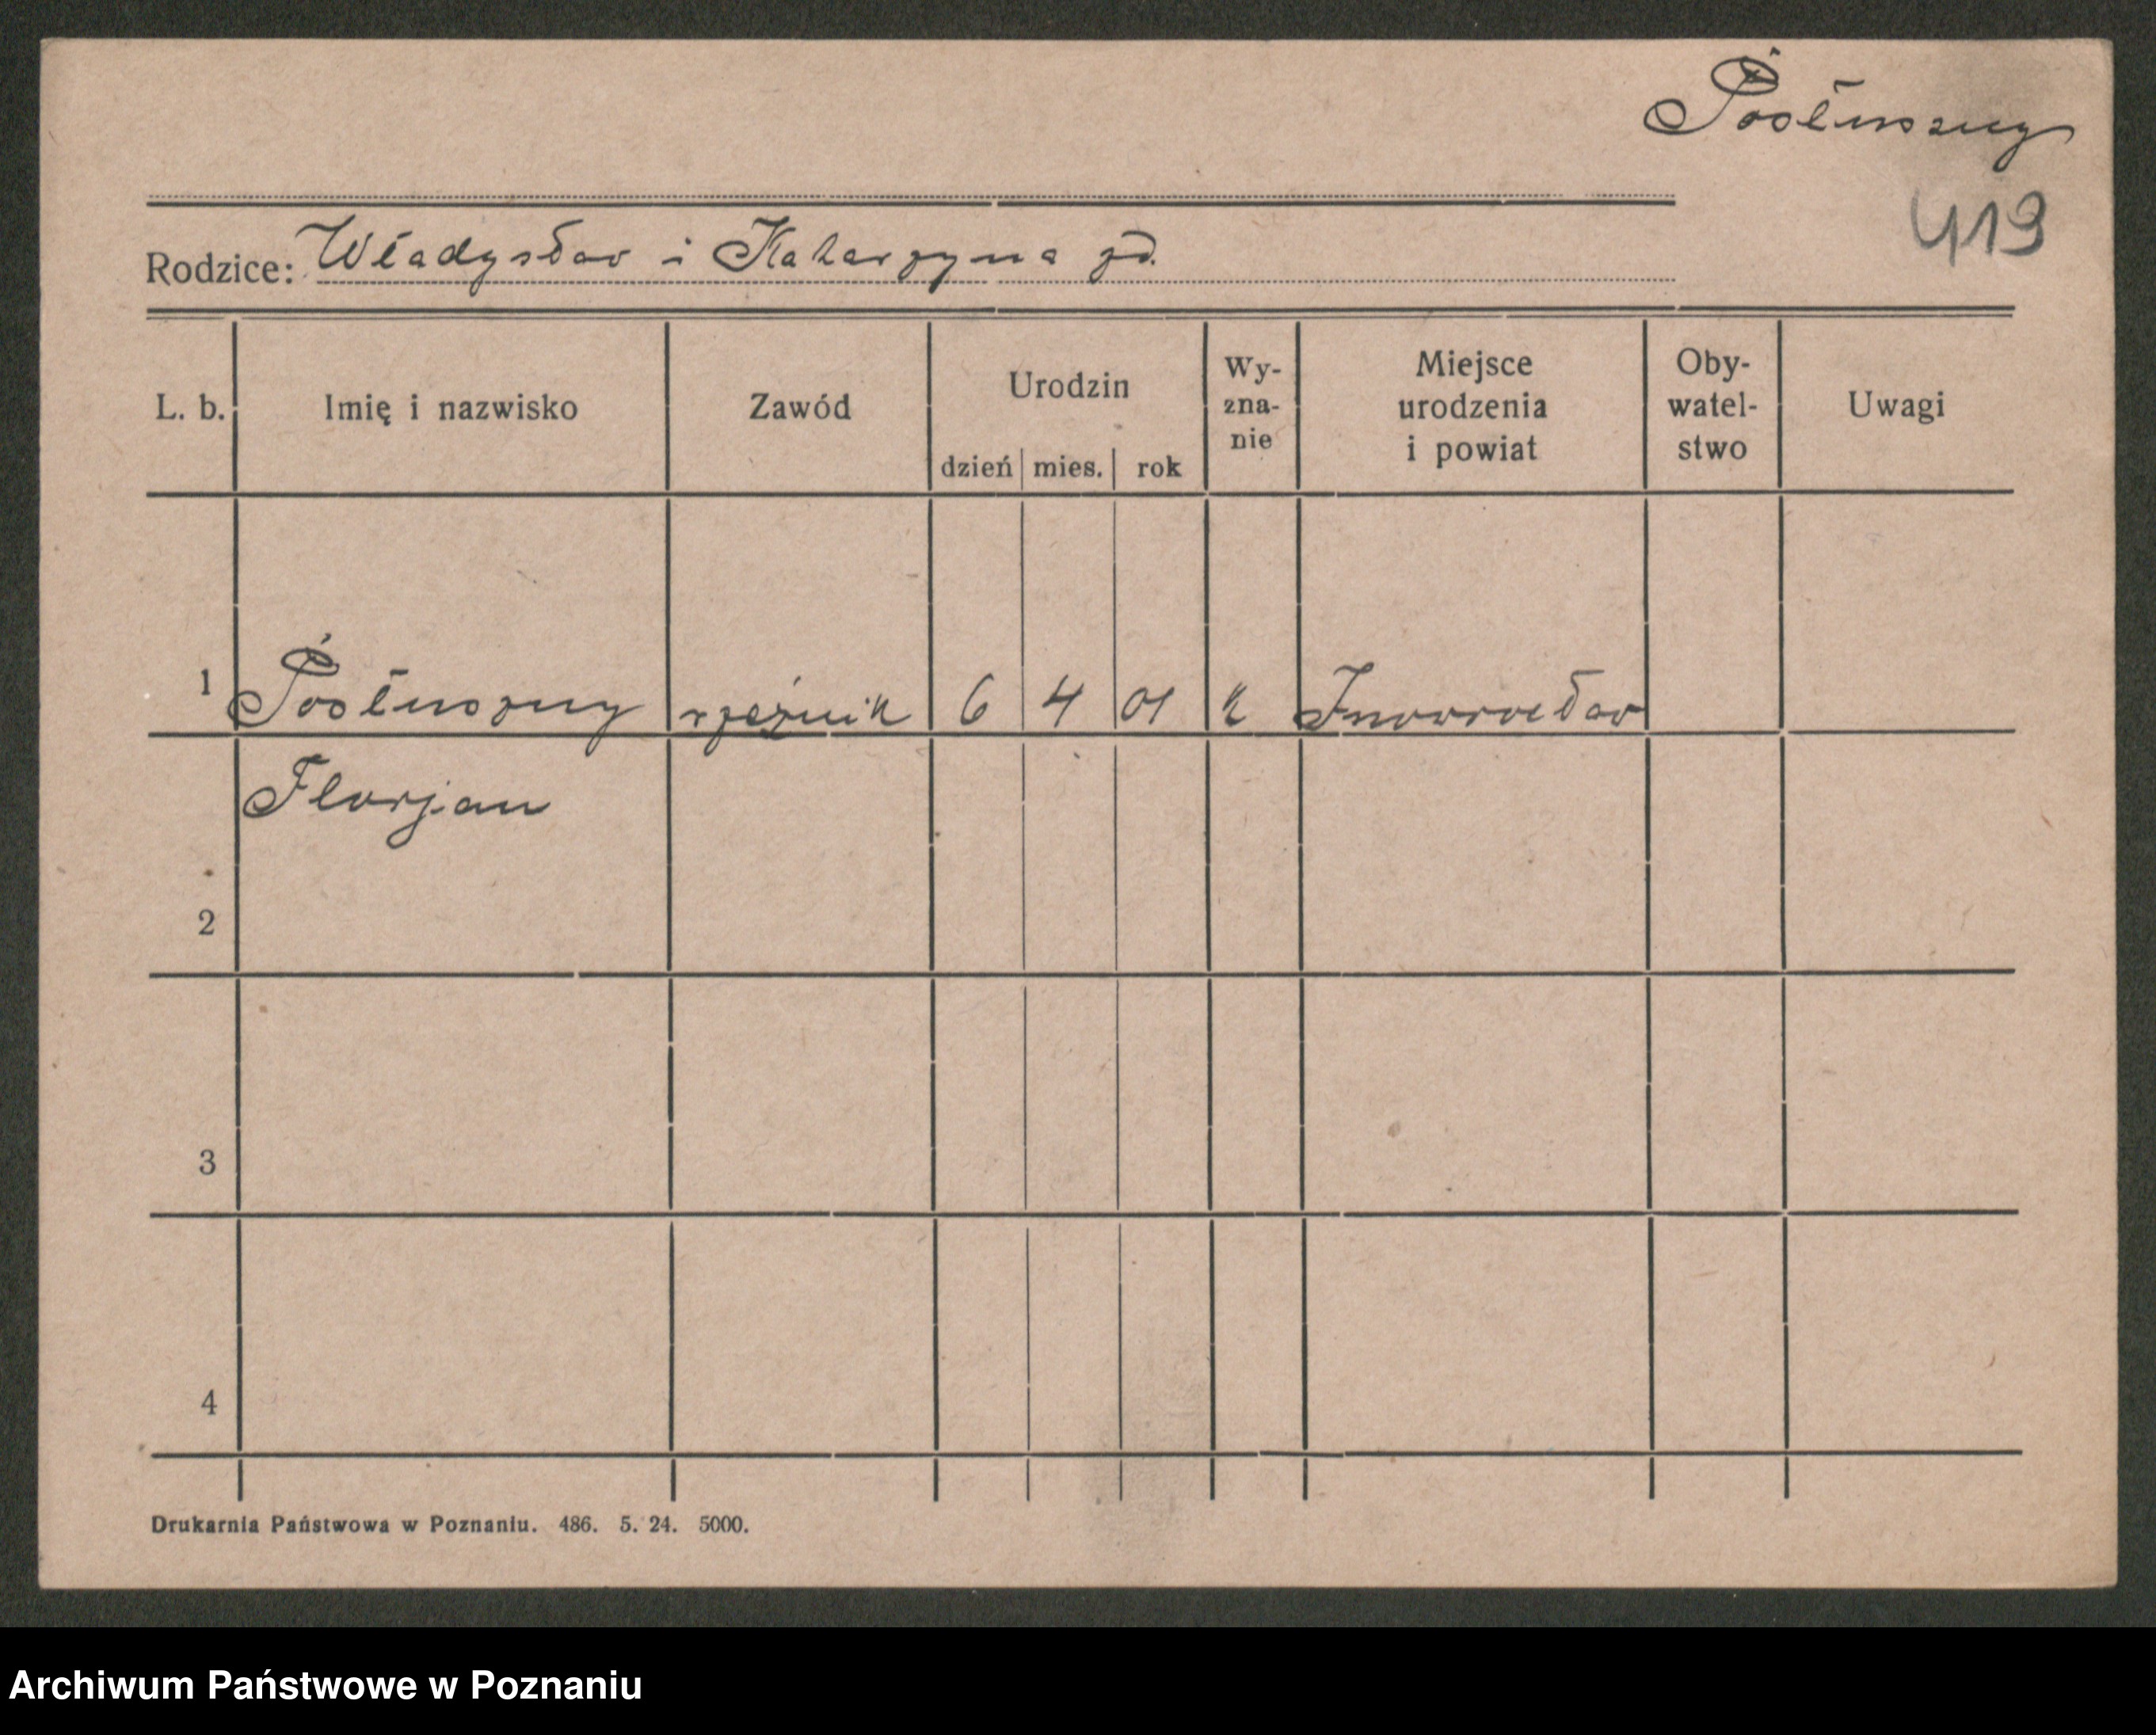 Posłuszny
419
Rodzice: Władysław i Katarzyna
L. b. Imię i nazwisko Zawód Urodzin dzień mies. rok Wy- zna- nie Miejsce urodzenia i powiat Oby- watel- stwo Uwagi
1 Posłuszny rzeźnik 6 4 01 k Inowrocław
Florjan
2
3
4
Drukarnia Państwowa w Poznaniu. 486. 5. 24. 5000.
Archiwum Państwowe w Poznaniu